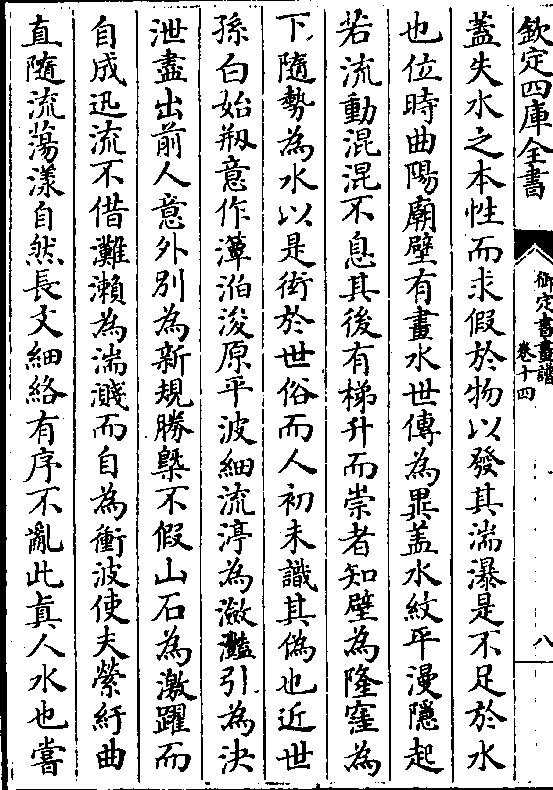 欽定四庫全書
御定書畫譜
卷十四
八
蓋失水之本性而求假於物以發其湍瀑是不足於水
也位時曲陽廟壁有畫水世傳為異蓋水紋平漫隱起
若流動混混不息其後有梯升而崇者知壁為隆窪為
下隨勢為水以是衒於世俗而人初未識其偽也近世
孫白始剏意作潭滀浚原平波細流渟為瀲灩引為決
泄盡出前人意外別為新規勝槩不假山石為激躍而
自成迅流不借灘瀨為湍濺而自為衝波使夫縈紆曲
直隨流蕩漾自然長文細絡有序不亂此真人水也嘗